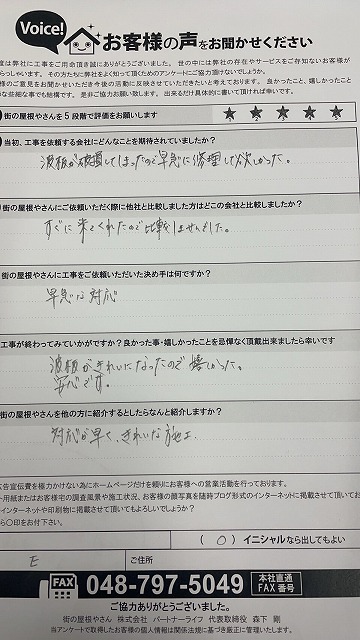 Voice!
お客様の声をお聞かせください
度は弊社に工事をご用命頂き誠にありがとうございました。 世の中には弊社の存在やサービスをご存知ないお客様が
らっしゃいます。 その方たちに弊社をよく知って頂くためのアンケートにご協力頂けないでしょうか。
様のご意見をお聞かせいただき今後の活動に反映させていただきたいと考えております。 良かったこと、嬉しかったこと
な些細な事でも結構です。 是非ご協力お願い致します。 出来るだけ具体的に書いて頂ければ幸いです。
街の屋根やさんを5段階で評価をお願いします
★ ★ ★ ★ ★
当初、工事を依頼する会社にどんなことを期待されていましたか?
波板が破損してしまったので早急に修理して欲しかった。
街の屋根やさんにご依頼いただく際に他社と比較しました方はどこの会社と比較しましたか?
すぐに来てくれたので比較しませんでした。
街の屋根やさんに工事をご依頼いただいた決め手は何ですか?
早急な対応
工事が終わってみていかがですか?良かった事・嬉しかったことを忌憚なく頂戴出来ましたら幸いです
波板がきれいになったので嬉しかった。
安心です。
街の屋根やさんを他の方に紹介するとしたらなんと紹介しますか?
対応が早く、きれいな施工
広告宣伝費を極力かけない為にホームページだけを頼りにお客様への営業活動を行っております。
ト用紙またはお客様宅の調査風景や施工状況、お客様の顔写真を随時ブログ形式のインターネットに掲載させて頂いてお
インターネットや印刷物に掲載させて頂いてもよろしいでしょうか?
ら○印をお付下さい。
( ○ ) イニシャルなら出してもよい
E
ご住所
FAX 048-797-5049 本社直通
FAX番号
ご協力ありがとうございました。
街の屋根やさん 株式会社 パートナーライフ 代表取締役 森下 剛
当アンケートで取得したお客様の個人情報は関係法規に基づき厳正に管理いたします。